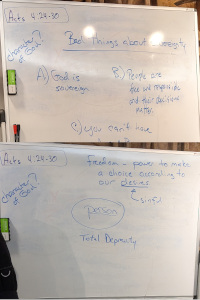 Acts 4:24-30
character?
of God!
Bad Things about sovereignty
A) God is
sovereign
B) People are
and their decisions
matter
C) you can't have
Acts 4:24-30
character?
of God!
Freedom - power to make
a choice according to
our desires
sinful
person
Total Depravity